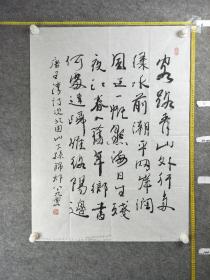 客路青山外行舟
綠水前潮平兩岸闊
風正一帆懸海日生殘
夜江春入舊年鄉書
何處達歸雁洛陽邊
唐王灣詩次北固山下